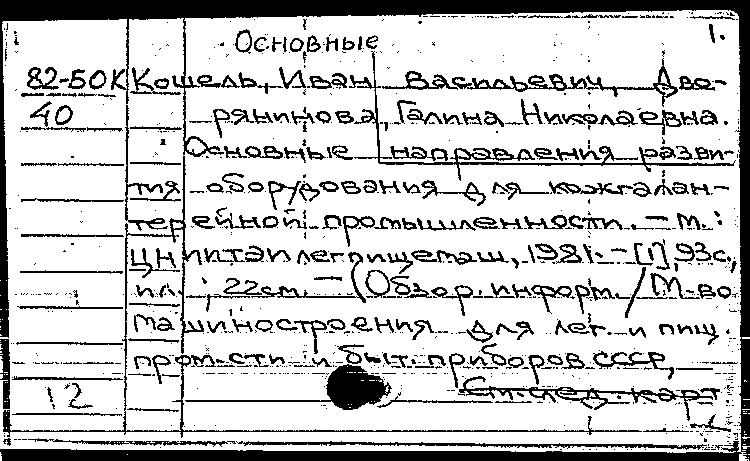 Основные 1.
82-50К Кошель, Иван Васильевич, Дво-
40 рянинова, Галина Николаевна.
Основные направления разви-
тия оборудования для кожгалан-
терейной промышленности. - М.:
ЦНИИТЭИлегпищемаш, 1981. - [1], 93с,
ил.; 22см. - (Обзор. информ. / М-во
машиностроения для лег. и пищ.
пром-сти и быт. приборов СССР,
12 См. след. карт